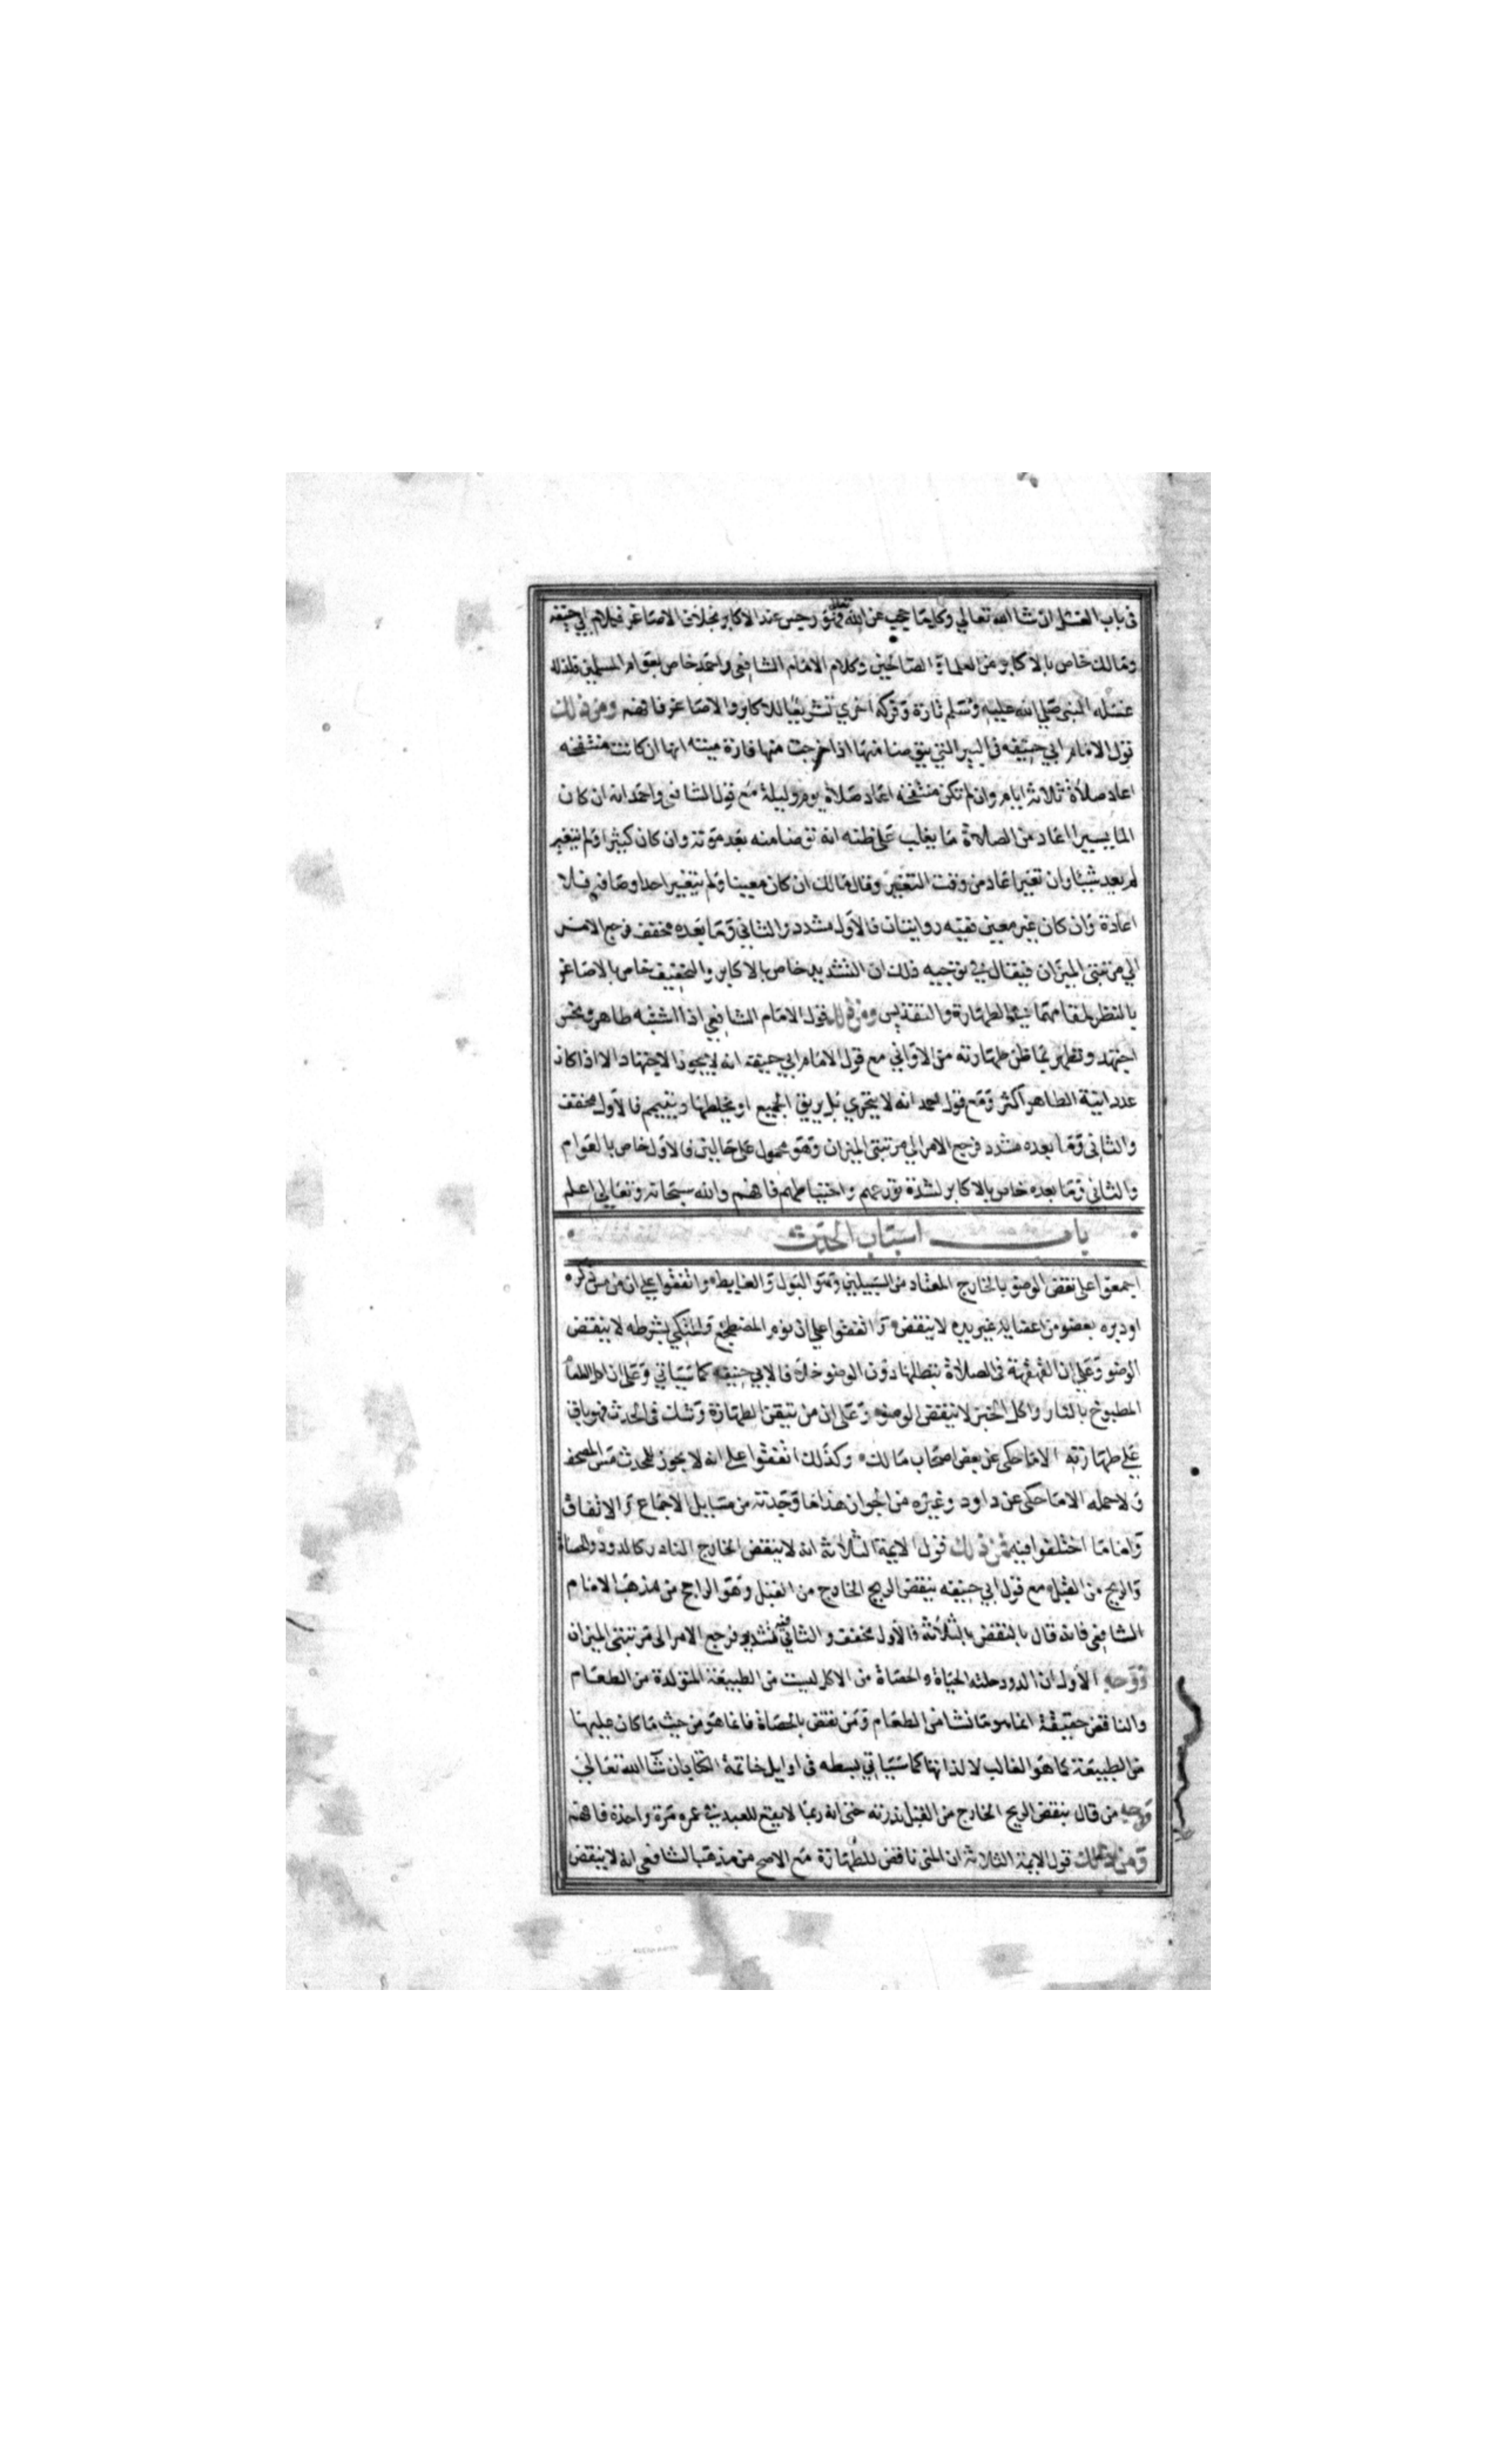 في باب الغسل ان شا الله تعالي وكلما حجب عن الله تعالى فهو رجس عند الاكابر بخلاف الاصاغر فكلام ابي حنيفه
ومالك خاص بالاكابر من العلما والصالحين وكلام الامام الشافعي واحمد خاص بعوام المسلمين فلذلك
غسله النبي صلي الله عليه وسلم تارة وفركه اخري تشريعا للاكابر والاصاغر فافهم ومن ذلك
قول الامام ابي حنيفه في البير التي يتوضا منها اذا خرجت منها فارة ميته انها ان كانت منتفخه
اعاد صلاة ثلاثه ايام وان لم تكن منتفخه اعاد صلاة يوم وليلة مع قول الشافعي واحمد انه ان كان
الما يسيرا اعاد من الصلاة ما يغلب على ظنه انه توضا منه بعد موته وان كان كثيرا ولم يتغير
لم يعد شيئا وان تغير اعاد من وقت التغيير وقال مالك ان كان معينا ولم يتغير احد اوصافه فلا
اعادة وان كان غير معين ففيه روايتان فالاول مشدد والثاني وما بعده مخفف فرجع الامر
الي مرتبتي الميزان فيقال في توجيه ذلك ان التشديد خاص بالاكابر والتخفيف خاص بالاصاغر
بالنظر لمقامهما في الطهارة والتقديس ومن ذلك قول الامام الشافعي اذا اشتبه طاهر بنجس
اجتهد وتطهر بما ظن طهارته من الاواني مع قول الامام ابي حنيفة انه لا يجوز الاجتهاد الا اذا كان
عدد انية الطاهر اكثر ومع قول احمد انه لا يتحري بل يريق الجميع او يخلطها ويتيمم فالاول مخفف
والثاني وما بعده مشدد فرجع الامر الي مرتبتي الميزان وهو محمول على حالين فالاول خاص بالعوام
والثاني وما بعده خاص بالاكابر لشدة تورعهم واحتياطهم فافهم والله سبحانه وتعالي اعلم
باب اسباب الحدث
اجمعوا على نقض الوضو بالخارج المعتاد من السبيلين وهو البول والغايط واتفقوا علي ان من مس ذكره
او دبره بعضو من اعضايه غير يده لا ينتقض واتفقوا علي ان نوم المضطجع والمتكي بشرطه لا ينقض
الوضو وعلي ان القهقهة في الصلاة تبطلها دون الوضو خلافا لابي حنيفه كما سياتي وعلى ان اكل الطعام
المطبوخ بالنار واكل الخبز لا ينقض الوضو وعلى ان من تيقن الطهارة وشك في الحدث فهو باق
علي طهارته الا ما حكي عن بعض اصحاب مالك وكذلك اتفقوا على انه لا يجوز للمحدث مس المصحف
ولا حمله الا ما حكى عن داود وغيره من الجواز هذا ما وجدته من مسايل الاجماع والاتفاق
واما ما اختلفوا فيه فمن ذلك قول الايمة الثلاثه انه لا ينقض الخارج النادر كالدود والحصاة
والريح من القبل مع قول ابي حنيفه ينقض الريح الخارج من القبل وهو الراجح من مذهب الامام
الشافعي فانه قال بالنقض بالثلاثه فالاول مخفف والثاني فيه تشديد فرجع الامر الى مرتبتي الميزان
ووجه الاول ان الدود حلته الحياة والحصاة من الاكل ليست من الطبيعة المتولدة من الطعام
والناقض حقيقة انما هو ما نشا من الطعام ومن نقض بالحصاة فانما هو من حيث ما كان عليها
من الطبيعة كما هو الغالب لا لذاتها كما سياتي بسطه في اوايل خاتمة الكتاب ان شا الله تعالي
ووجه من قال ينقض الريح الخارج من القبل ندرته حتى انه ربما لا يقع للعبد في عمره مرة واحدة فافهم
ومن ذلك قول الايمة الثلاثه ان المني ناقض للطهارة مع الاصح من مذهب الشافعي انه لا ينقض